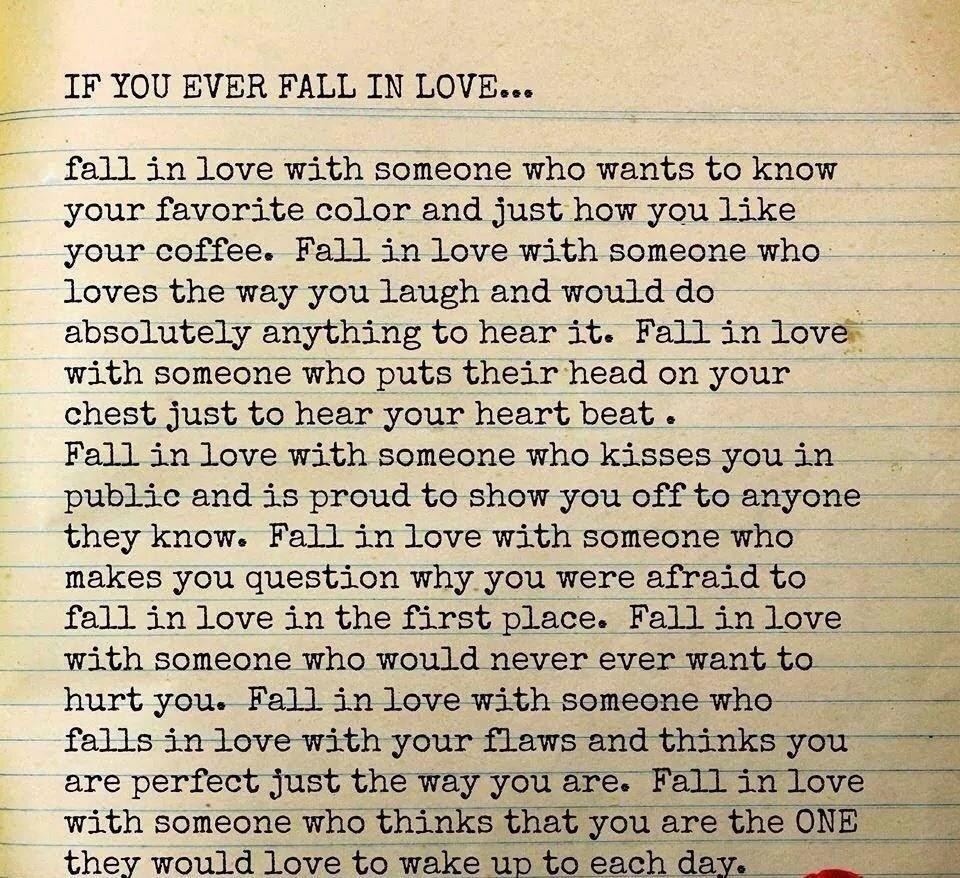 IF YOU EVER FALL IN LOVE...
fall in love with someone who wants to know
your favorite color and just how you like
your coffee. Fall in love with someone who
loves the way you laugh and would do
absolutely anything to hear it. Fall in love
with someone who puts their head on your
chest just to hear your heart beat .
Fall in love with someone who kisses you in
public and is proud to show you off to anyone
they know. Fall in love with someone who
makes you question why you were afraid to
fall in love in the first place. Fall in love
with someone who would never ever want to
hurt you. Fall in love with someone who
falls in love with your flaws and thinks you
are perfect just the way you are. Fall in love
with someone who thinks that you are the ONE
they would love to wake up to each day.